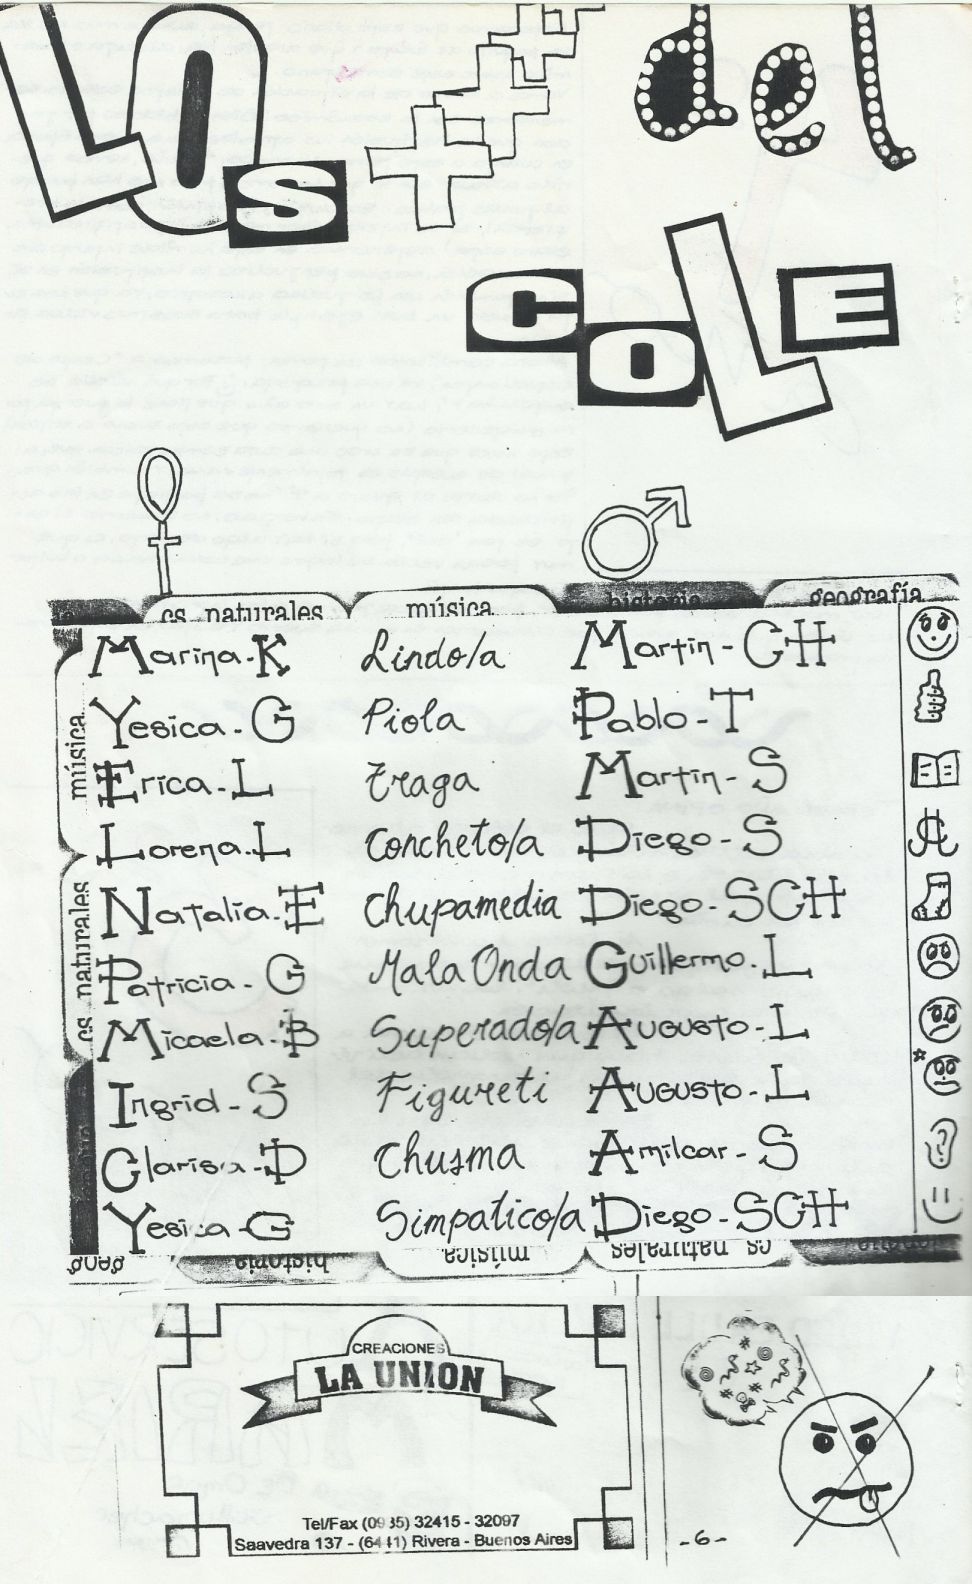 LOS +++ del
COLE
cs naturales música historia geografía
Marina-K Lindo/a Martin-GH
Yesica-G Piola Pablo-T
Erica-L Traga Martin-S
Lorena-L Concheto/a Diego-S
Natalia-E Chupamedia Diego-SGH
Patricia-G Mala Onda Guillermo-L
Micaela-B Superado/a Augusto-L
Ingrid-S Figureti Augusto-L
Clarisa-D Chusma Amilcar-S
Yesica-G Simpatico/a Diego-SGH
música
cs naturales
geog historia música cs naturales
CREACIONES
LA UNION
Tel/Fax 32415 - 32097
Saavedra 137 - Rivera - Buenos Aires
-6-